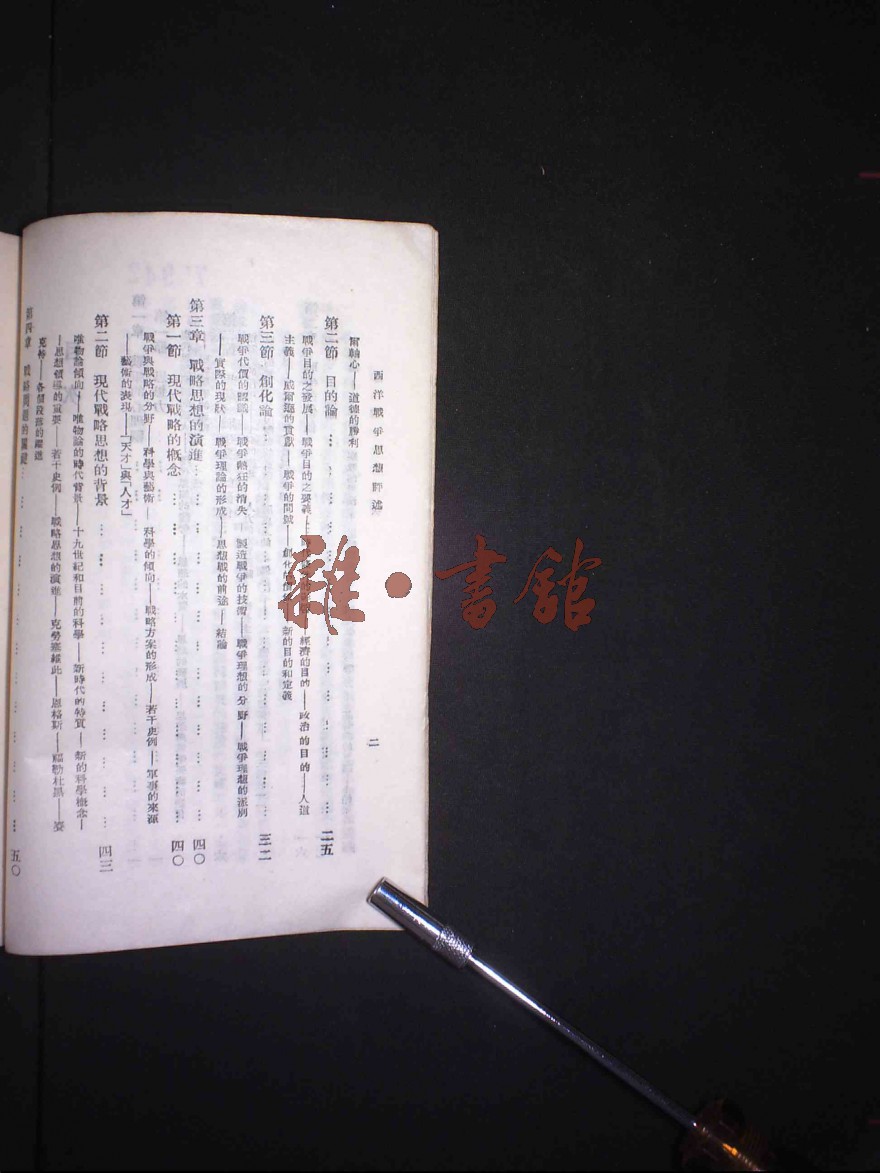 西洋戰爭思想評述
二
爾軸心——道德的勝利
第二節 目的論…………二五
戰爭目的之發展——戰爭目的之要義——經濟的目的——政治的目的——人道
主義——威爾遜的貢獻——戰爭的問號——創化價值——新的目的和定義
第三節 創化論…………三二
戰爭代價的 戰爭 狂的消失——製造戰爭的技術——戰爭理想的分野——戰爭理想的派別
——實際的現狀——戰爭理論的形成——思想戰的前途——結論
第三章 戰略思想的演進…………四〇
第一節 現代戰略的概念…………四〇
戰爭與戰略的分野——科學與藝術——科學的傾向——戰略方案的形成——若干史例——軍事的來源
——藝術的表現——「天才」與「人才」
第二節 現代戰略思想的背景…………四三
唯物論傾向——唯物論的時代背景——十九世紀和目前的科學——新時代的特質——新的科學概念—
—思想領導的重要——若干史例——戰略思想的演進——克勞塞維此——恩格斯——福勒 ——麥
克 ——各個段落的躍進
第四章 戰略問題的關鍵…………五〇
雜·書館